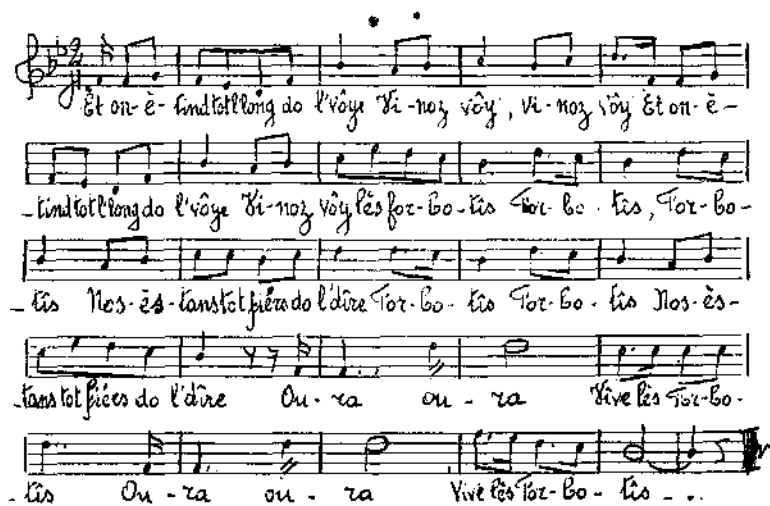 Et on-è-tind tot l'long do l'vôye Vi-noz vôy, vi-noz vôy Et on-è-
-tind tot l'long do l'vôye Vi-noz vôy lès for-bo-tis Tor-bo-tis, Tor-bo-
-tis Nos-ès-tans tot fiérs do l'dîre Tor-bo-tis Tor-bo-tis Nos-ès-
-tans tot fiérs do l'dîre Ou-ra ou-ra Vive lès Tor-bo-
-tis Ou-ra ou-ra Vive lès Tor-bo-tis - ..